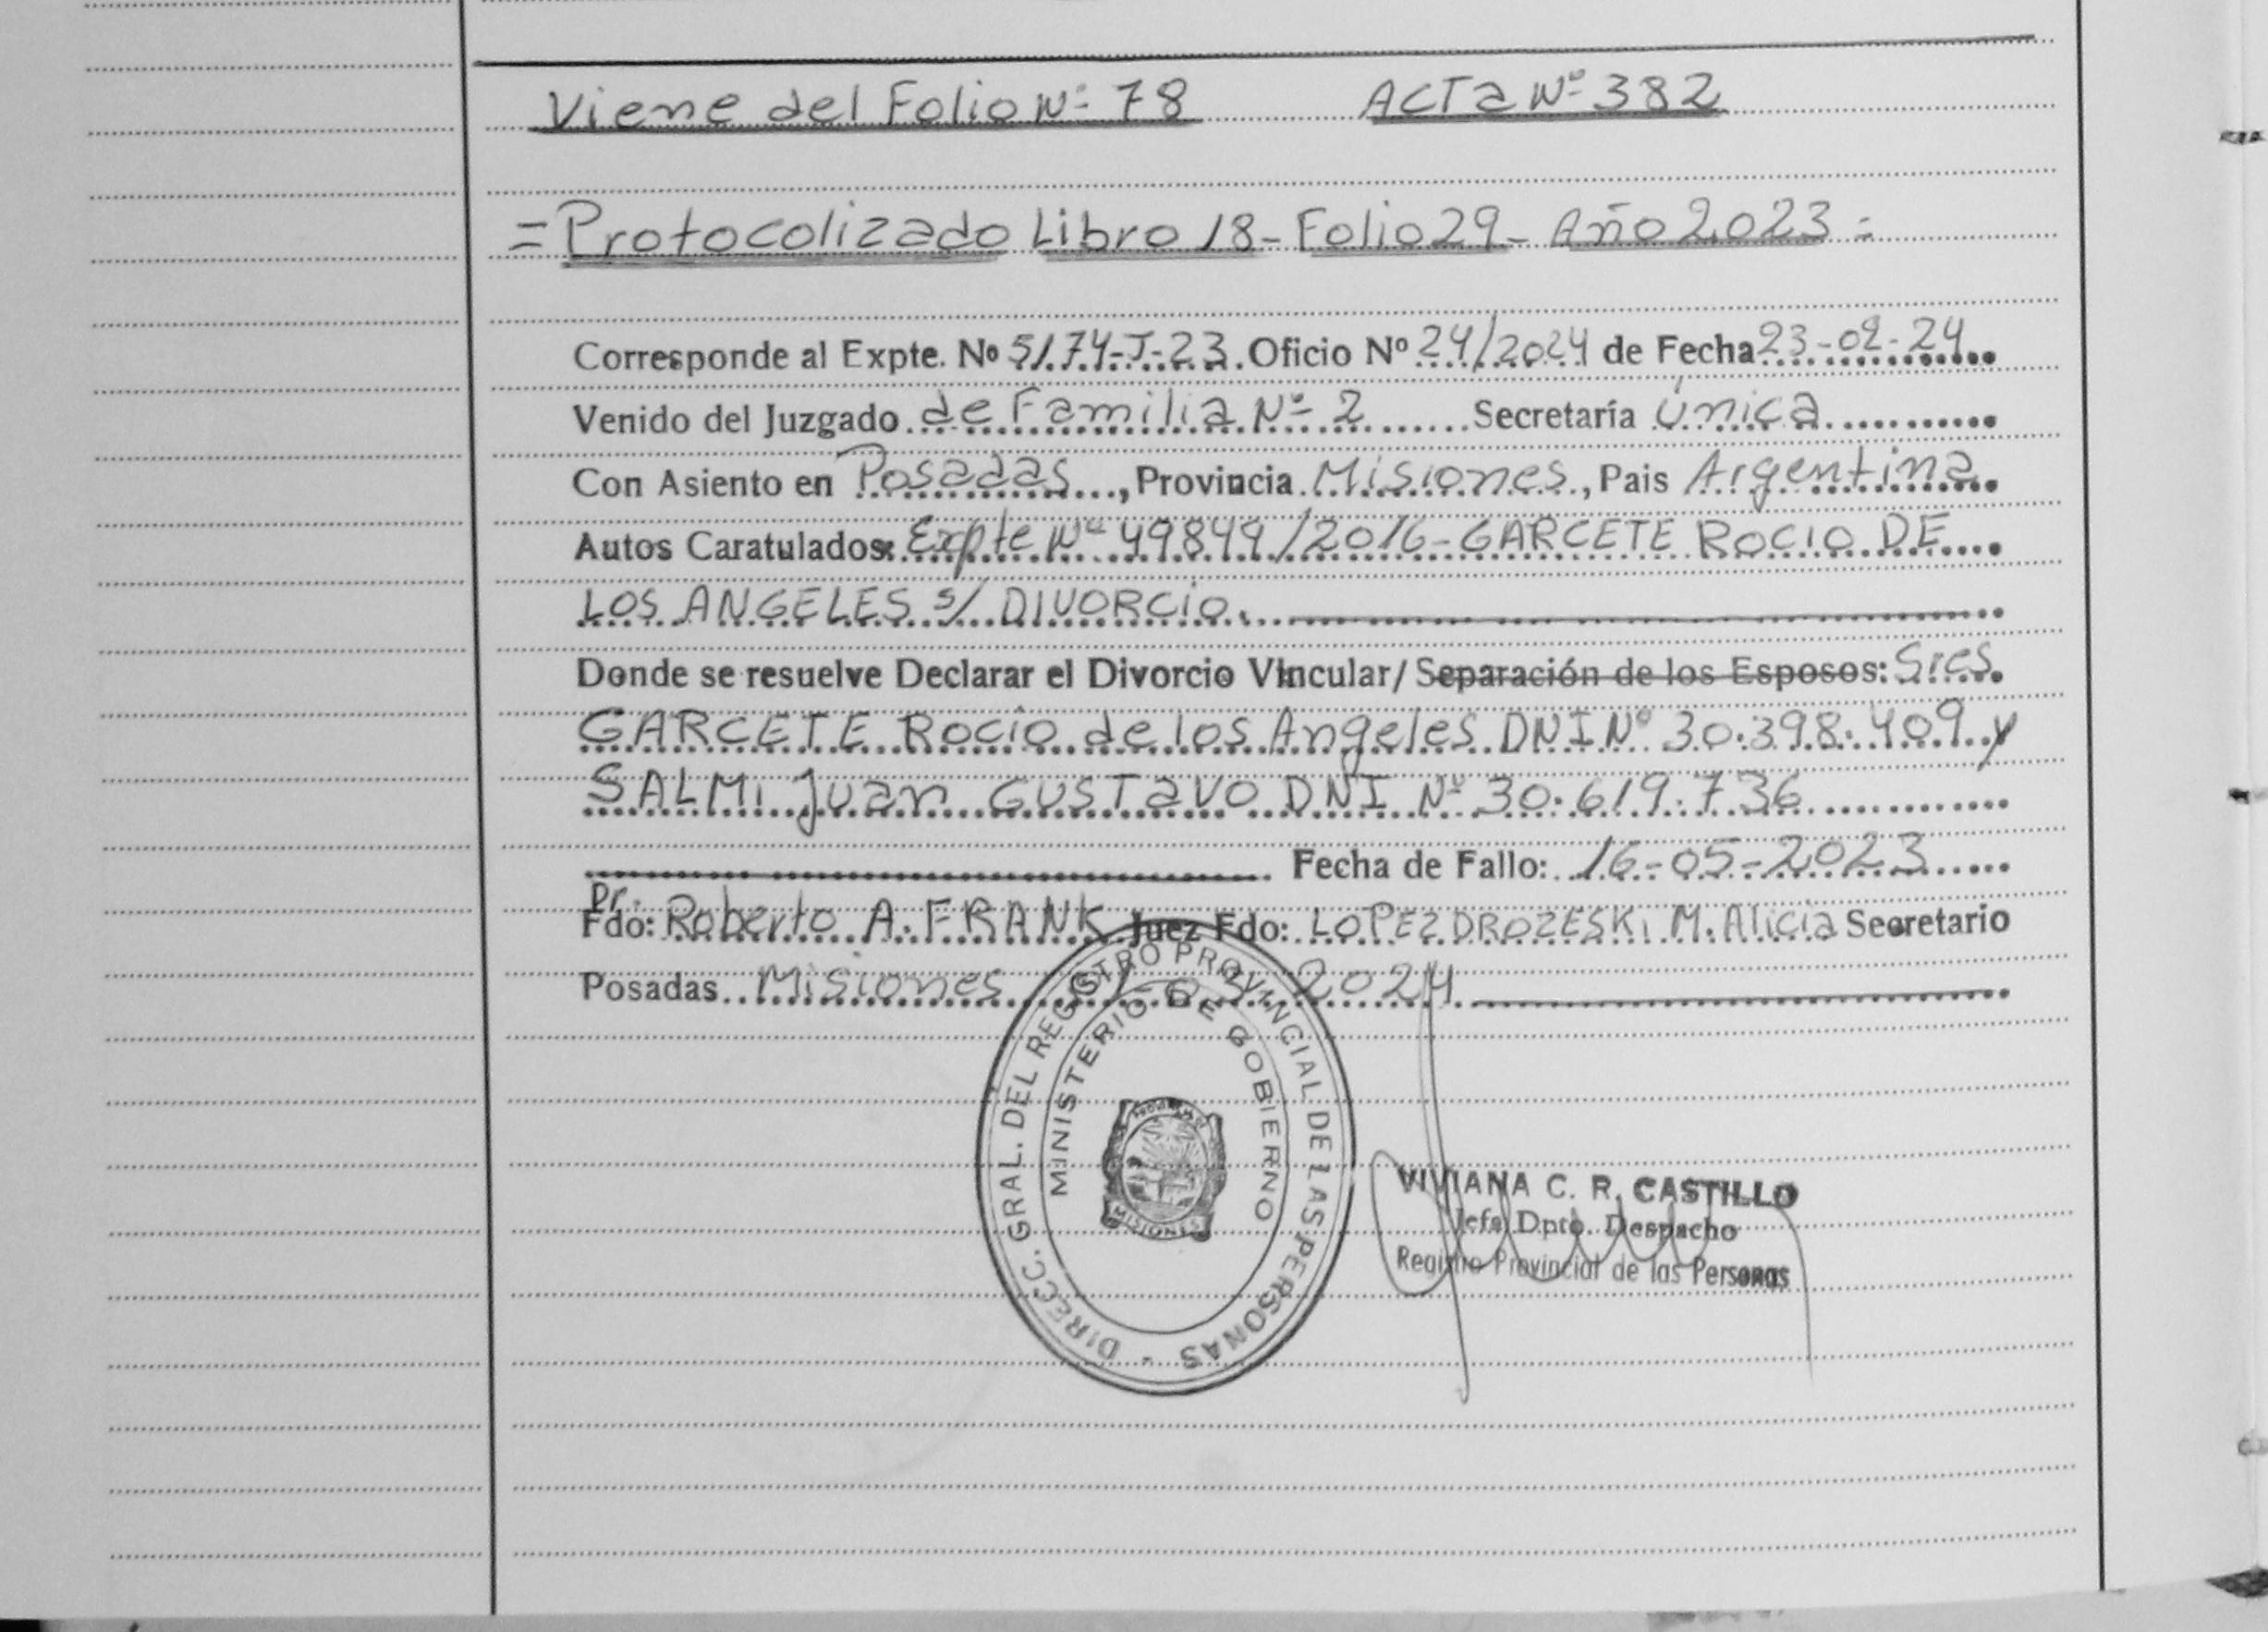 Viene del Folio Nº 78 ACTa Nº 382
= Protocolizado Libro 18 - Folio 29 - Año 2023 =
Corresponde al Expte. Nº 5174-J-23. Oficio Nº 24/2024 de Fecha 23-02-24
Venido del Juzgado de Familia Nº 2 Secretaría única
Con Asiento en Posadas, Provincia Misiones, Pais Argentina
Autos Caratulados: Expte Nº 49849/2016 - GARCETE ROCIO DE
LOS ANGELES s/ DIVORCIO.
Donde se resuelve Declarar el Divorcio Vincular/ Separación de los Esposos: Sres.
GARCETE Rocio de los Angeles DNI Nº 30.398.409 y
SALMi Juan GUSTavo DNI Nº 30.619.736
Fecha de Fallo: 16-05-2023
Dr.
Fdo: Roberto A. FRANK Juez Fdo: LOPEZ DROZESKi M. Alicia Secretario
Posadas Misiones 2024
DIRECC. GRAL. DEL REGISTRO PROVINCIAL DE LAS PERSONAS -
MINISTERIO DE GOBIERNO
MISIONES
VIVIANA C. R. CASTILLO
Jefa Dpto. Despacho
Registro Provincial de las Personas